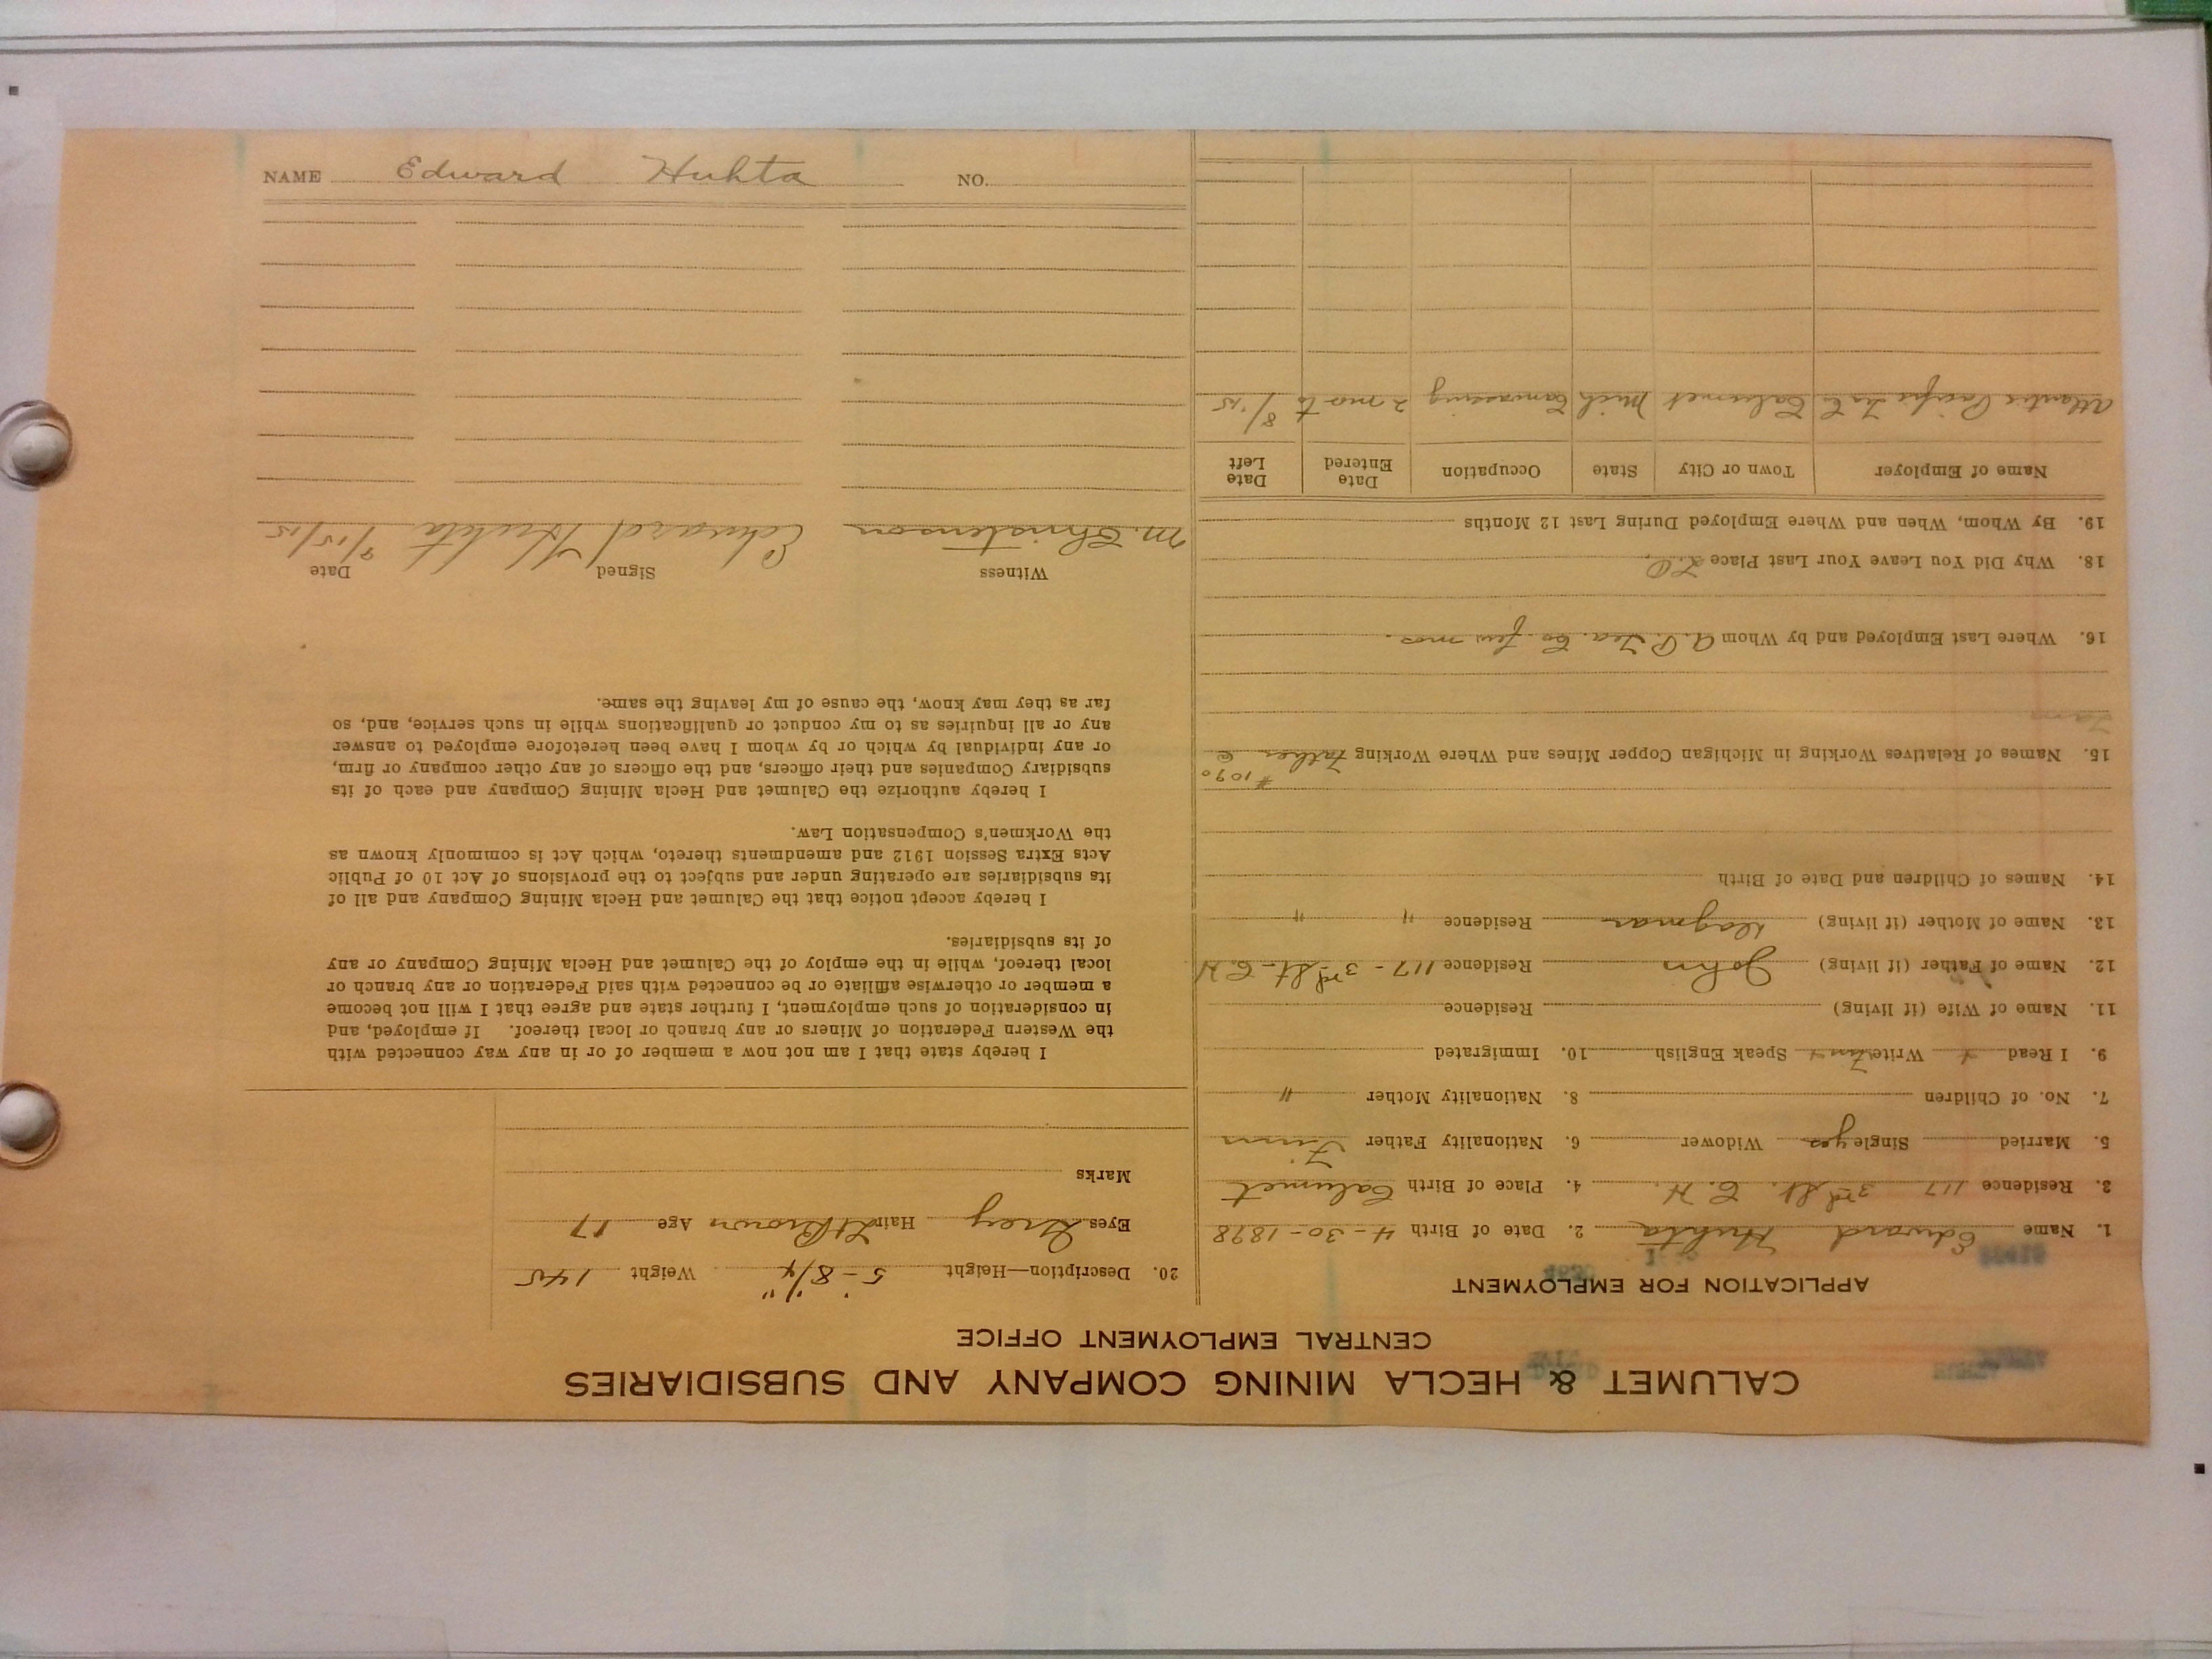 CALUMET & HECLA MINING COMPANY AND SUBSIDIARIES
CENTRAL EMPLOYMENT OFFICE
APPLICATION FOR EMPLOYMENT
1. Name Edward Huhta 2. Date of Birth 4-30-1898
3. Residence 117 3rd St. C. H. 4. Place of Birth Calumet
5. Married Single yes Widower 6. Nationality Father Finn
7. No. of Children 8. Nationality Mother "
9. I Read Write Speak English 10. Immigrated
11. Name of Wife (if living) Residence
12. Name of Father (if living) John Residence 117-3rd St-C.H
13. Name of Mother (if living) Dagmar Residence " "
14. Names of Children and Date of Birth
#1090
15. Names of Relatives Working in Michigan Copper Mines and Where Working Father
16. Where Last Employed and by Whom A. P. Tea. Co few mos.
18. Why Did You Leave Your Last Place
19. By Whom, When and Where Employed During Last 12 Months
Name of Employer Town or City State Occupation Date Entered Date Left
Atlantic Pacific Calumet Mich Canvassing 2 mo to 8/'15
20. Description—Height 5'-8 1/4" Weight 145
Eyes Grey Hair Lt Brown Age 17
Marks
I hereby state that I am not now a member of or in any way connected with
the Western Federation of Miners or any branch or local thereof. If employed, and
in consideration of such employment, I further state and agree that I will not become
a member or otherwise affiliate or be connected with said Federation or any branch or
local thereof, while in the employ of the Calumet and Hecla Mining Company or any
of its subsidiaries.
I hereby accept notice that the Calumet and Hecla Mining Company and all of
its subsidiaries are operating under and subject to the provisions of Act 10 of Public
Acts Extra Session 1912 and amendments thereto, which Act is commonly known as
the Workmen's Compensation Law.
I hereby authorize the Calumet and Hecla Mining Company and each of its
subsidiary Companies and their officers, and the officers of any other company or firm,
or any individual by which or by whom I have been heretofore employed to answer
any or all inquiries as to my conduct or qualifications while in such service, and, so
far as they may know, the cause of my leaving the same.
Witness Signed Date
M. Christenson Edward Huhta 9/15/15
NAME Edward Huhta NO.